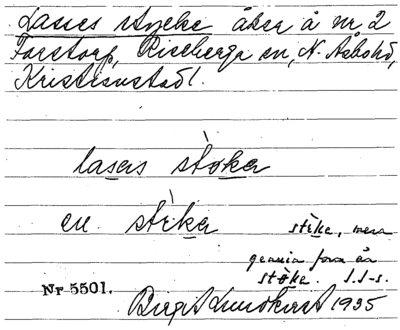 Lasses stycke åker å nr 2
Forstorp, Riseberga sn, N. Åsbohd,
Kristianstad l.
lasas stòka
en stèka stèka, mera
genuin form än
stöka. S.S-s.
Nr 5501. Birgit Lundkvist 1935